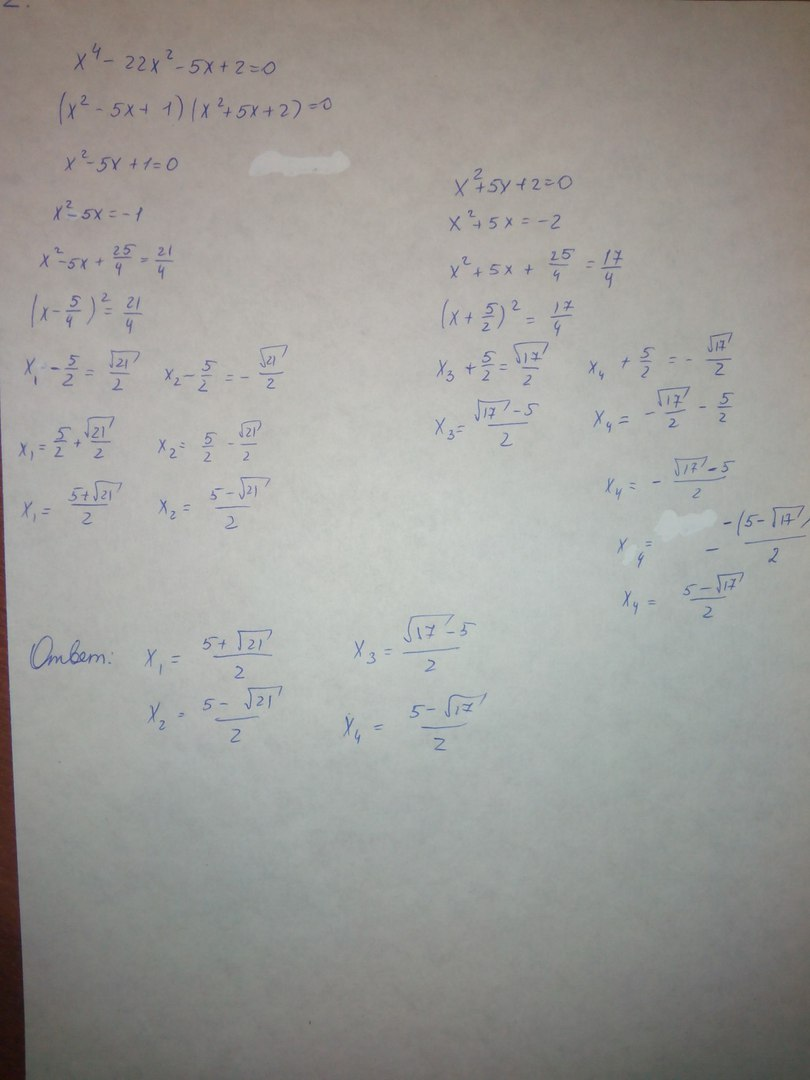 2.
x⁴ - 22x² - 5x + 2 = 0
(x² - 5x + 1)(x² + 5x + 2) = 0
x² - 5x + 1 = 0
x² - 5x = -1
x² - 5x + 25/4 = 21/4
(x - 5/4)² = 21/4
x₁ - 5/2 = √21/2 x₂ - 5/2 = - √21/2
x₁ = 5/2 + √21/2 x₂ = 5/2 - √21/2
x₁ = (5+√21)/2 x₂ = (5-√21)/2
x² + 5x + 2 = 0
x² + 5x = -2
x² + 5x + 25/4 = 17/4
(x + 5/2)² = 17/4
x₃ + 5/2 = √17/2 x₄ + 5/2 = - √17/2
x₃ = (√17 - 5)/2 x₄ = - √17/2 - 5/2
x₄ = - (√17 - 5)/2
x₄ = - -(5-√17)/2
x₄ = (5-√17)/2
Ответ: x₁ = (5+√21)/2 x₃ = (√17 - 5)/2
x₂ = (5-√21)/2 x₄ = (5-√17)/2